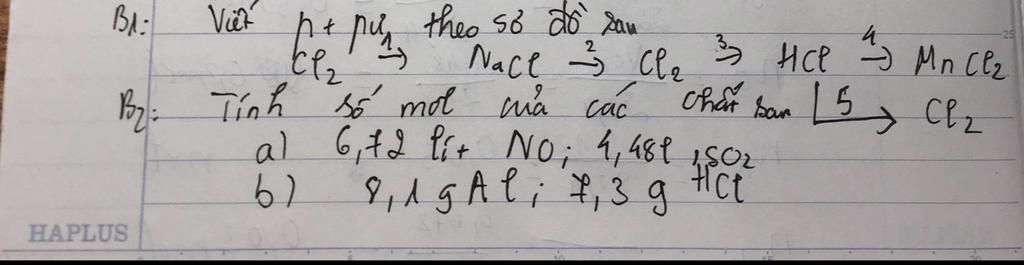 B1: Viết pt pứ theo sơ đồ sau
Cl2 1→ NaCl 2→ Cl2 3→ HCl 4→ MnCl2
B2: Tính số mol của các chất sau 5→ Cl2
a) 6,72 lít NO; 4,48l SO2
b) 8,1 g Al; 7,3 g HCl
HAPLUS